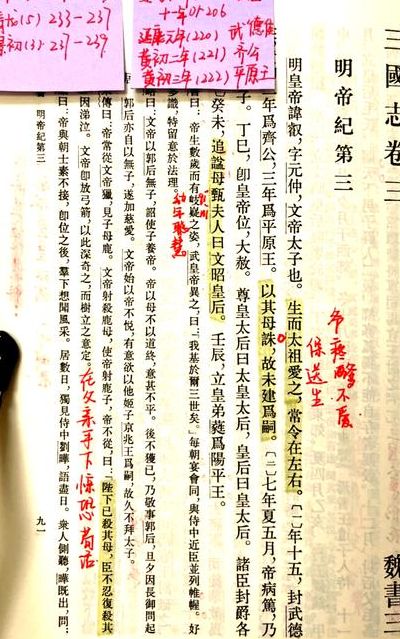 (5) 233-237
初(3) 237-239
延康元年(220) 武德侯
黄初二年(221) 齐公
黄初三年(222) 平原王
三國志卷三 魏書三
明帝紀第三
爷疼爹不爱
保送生
明皇帝諱叡,字元仲,文帝太子也。生而太祖愛之,常令在左右。〔一〕年十五,封武德
年爲齊公,三年爲平原王。以其母誅,故未建爲嗣。〔二〕七年夏五月,帝病篤,乃
子。丁巳,即皇帝位,大赦。尊皇太后曰太皇太后,皇后曰皇太后。諸臣封爵各
癸未,追諡母甄夫人曰文昭皇后。壬辰,立皇弟蕤爲陽平王。
書曰:帝生數歲而有岐嶷之姿,武皇帝異之,曰:「我基於爾三世矣。」每朝宴會同,與侍中近臣並列帷幄。好
幼年聰慧
多識,特留意於法理。
略曰:文帝以郭后無子,詔使子養帝。帝以母不以道終,意甚不平。後不獲已,乃敬事郭后,旦夕因長御問起
郭后亦自以無子,遂加慈愛。文帝始以帝不悅,有意欲以他姬子京兆王爲嗣,故久不拜太子。
傳曰:帝常從文帝獵,見子母鹿。文帝射殺鹿母,使帝射鹿子,帝不從,曰:「陛下已殺其母,臣不忍復殺其
因涕泣。文帝即放弓箭,以此深奇之,而樹立之意定。
在父亲手下惊恐苟活
曰:帝與朝士素不接,即位之後,羣下想聞風采。居數日,獨見侍中劉曄,語盡日。衆人側聽,曄既出,問:
明帝紀第三
九一